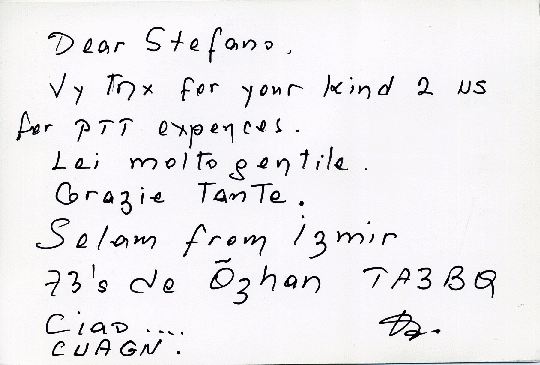 Dear Stefano,
Vy Tnx for your kind 2 us
for PTT expences.
Lei molto gentile.
Grazie Tante.
Selam from İzmir
73's de Özhan TA3BQ
Ciao ....
CUAGN.